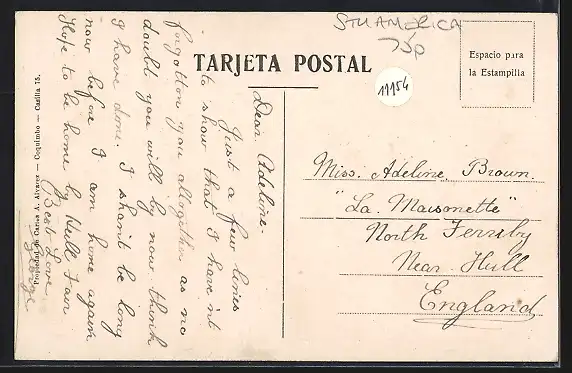 STH AMERICA
75p
TARJETA POSTAL
Espacio para
la Estampilla
11954
Dear Adeline.
Just a few lines
to show that I haven't
forgotton you altogether as no
doubt you will by now think
I have done. I shan't be long
now before I am home again
Hope to be home by Hull Fair
Best Love
George
Miss. Adeline. Brown.
"La. Maisonette"
North Ferriby
Near. Hull
England
Propiedad de Carlos A. Alvarez — Coquimbo — Casilla 15.